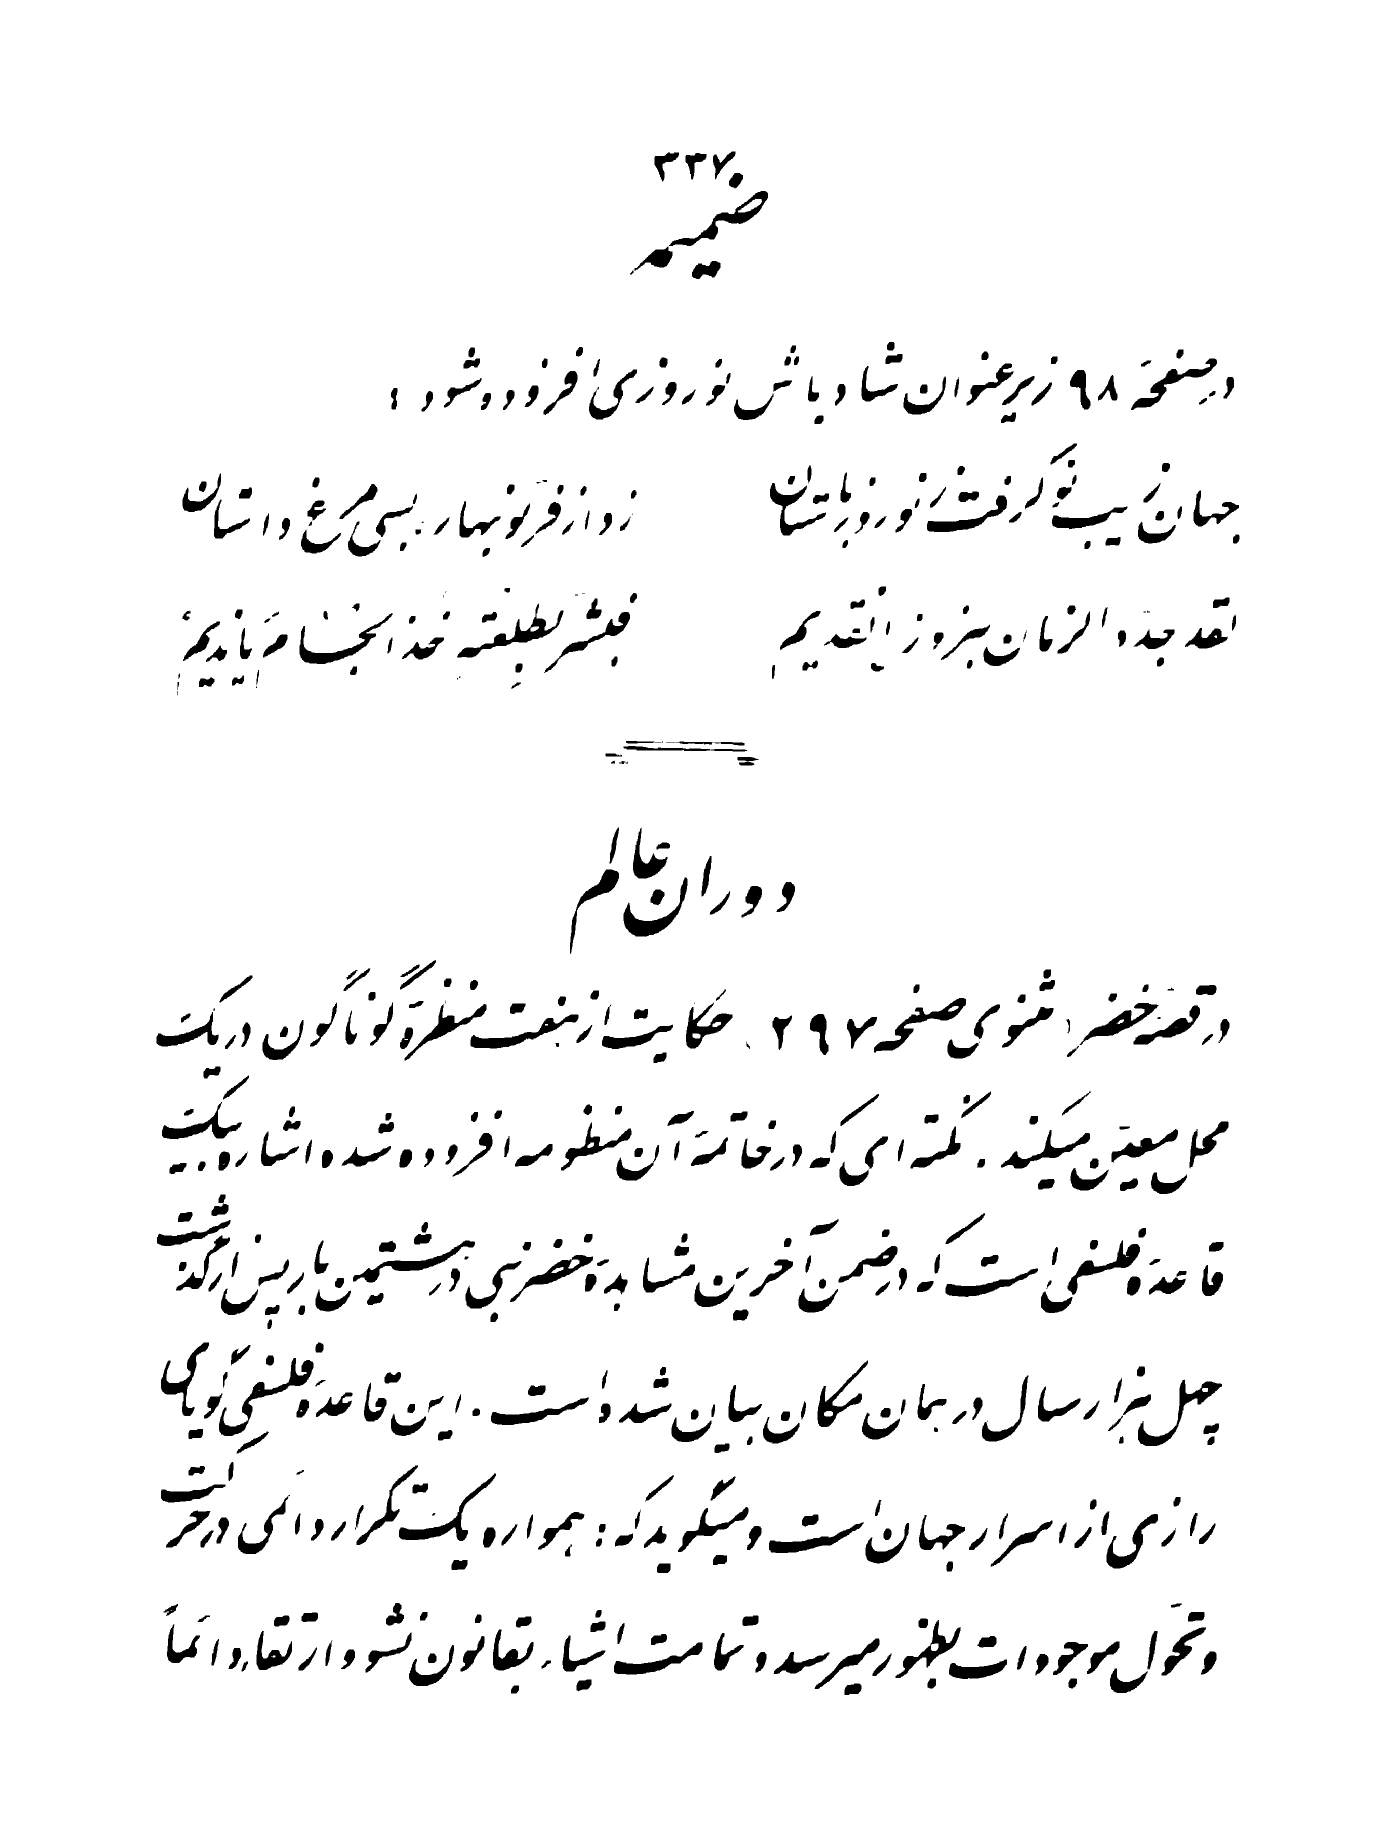 ۳۳۷
ضمیمه
در صفحهٔ ۹۸ زیر عنوان شاد باش نوروزی افزوده شود :
جهان زیب نو گرفت ز نوروز باستان    زد از فرّ نوبهار بسی مرغ داستان
لقد جدد الزمان بنیروز القدیم    فبشر بطلعته خذ الجام یا ندیم
دوران عالم
در قصهٔ خضر ( مثنوی صفحه ۲۹۷ ) حکایت از هفت منظرهٔ گوناگون در یک
محل معین میکند . نکته ای که در خاتمهٔ آن منظومه افزوده شده اشاره بیک
قاعدهٔ فلسفی است که در ضمن آخرین مشاهدهٔ خضر نبی در هشتمین بار پس از گذشت
چهل هزار سال در همان مکان بیان شده است . این قاعدهٔ فلسفی گویای
رازی از اسرار جهان است و میگوید که : همواره یک تکرار دائمی در حرکت
و تحوّل موجودات بظهور میرسد و تمامت اشیاء بقانون نشو و ارتقاء دائماً